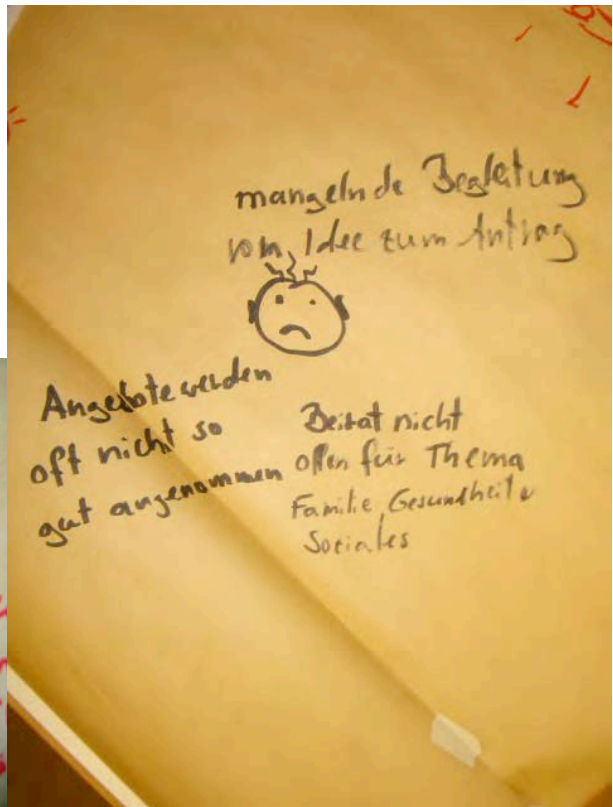 mangelnde Begleitung
vom Idee zum Antrag
Angebote werden
oft nicht so
gut angenommen
Beirat nicht
offen für Thema
Familie, Gesundheit u
Soziales